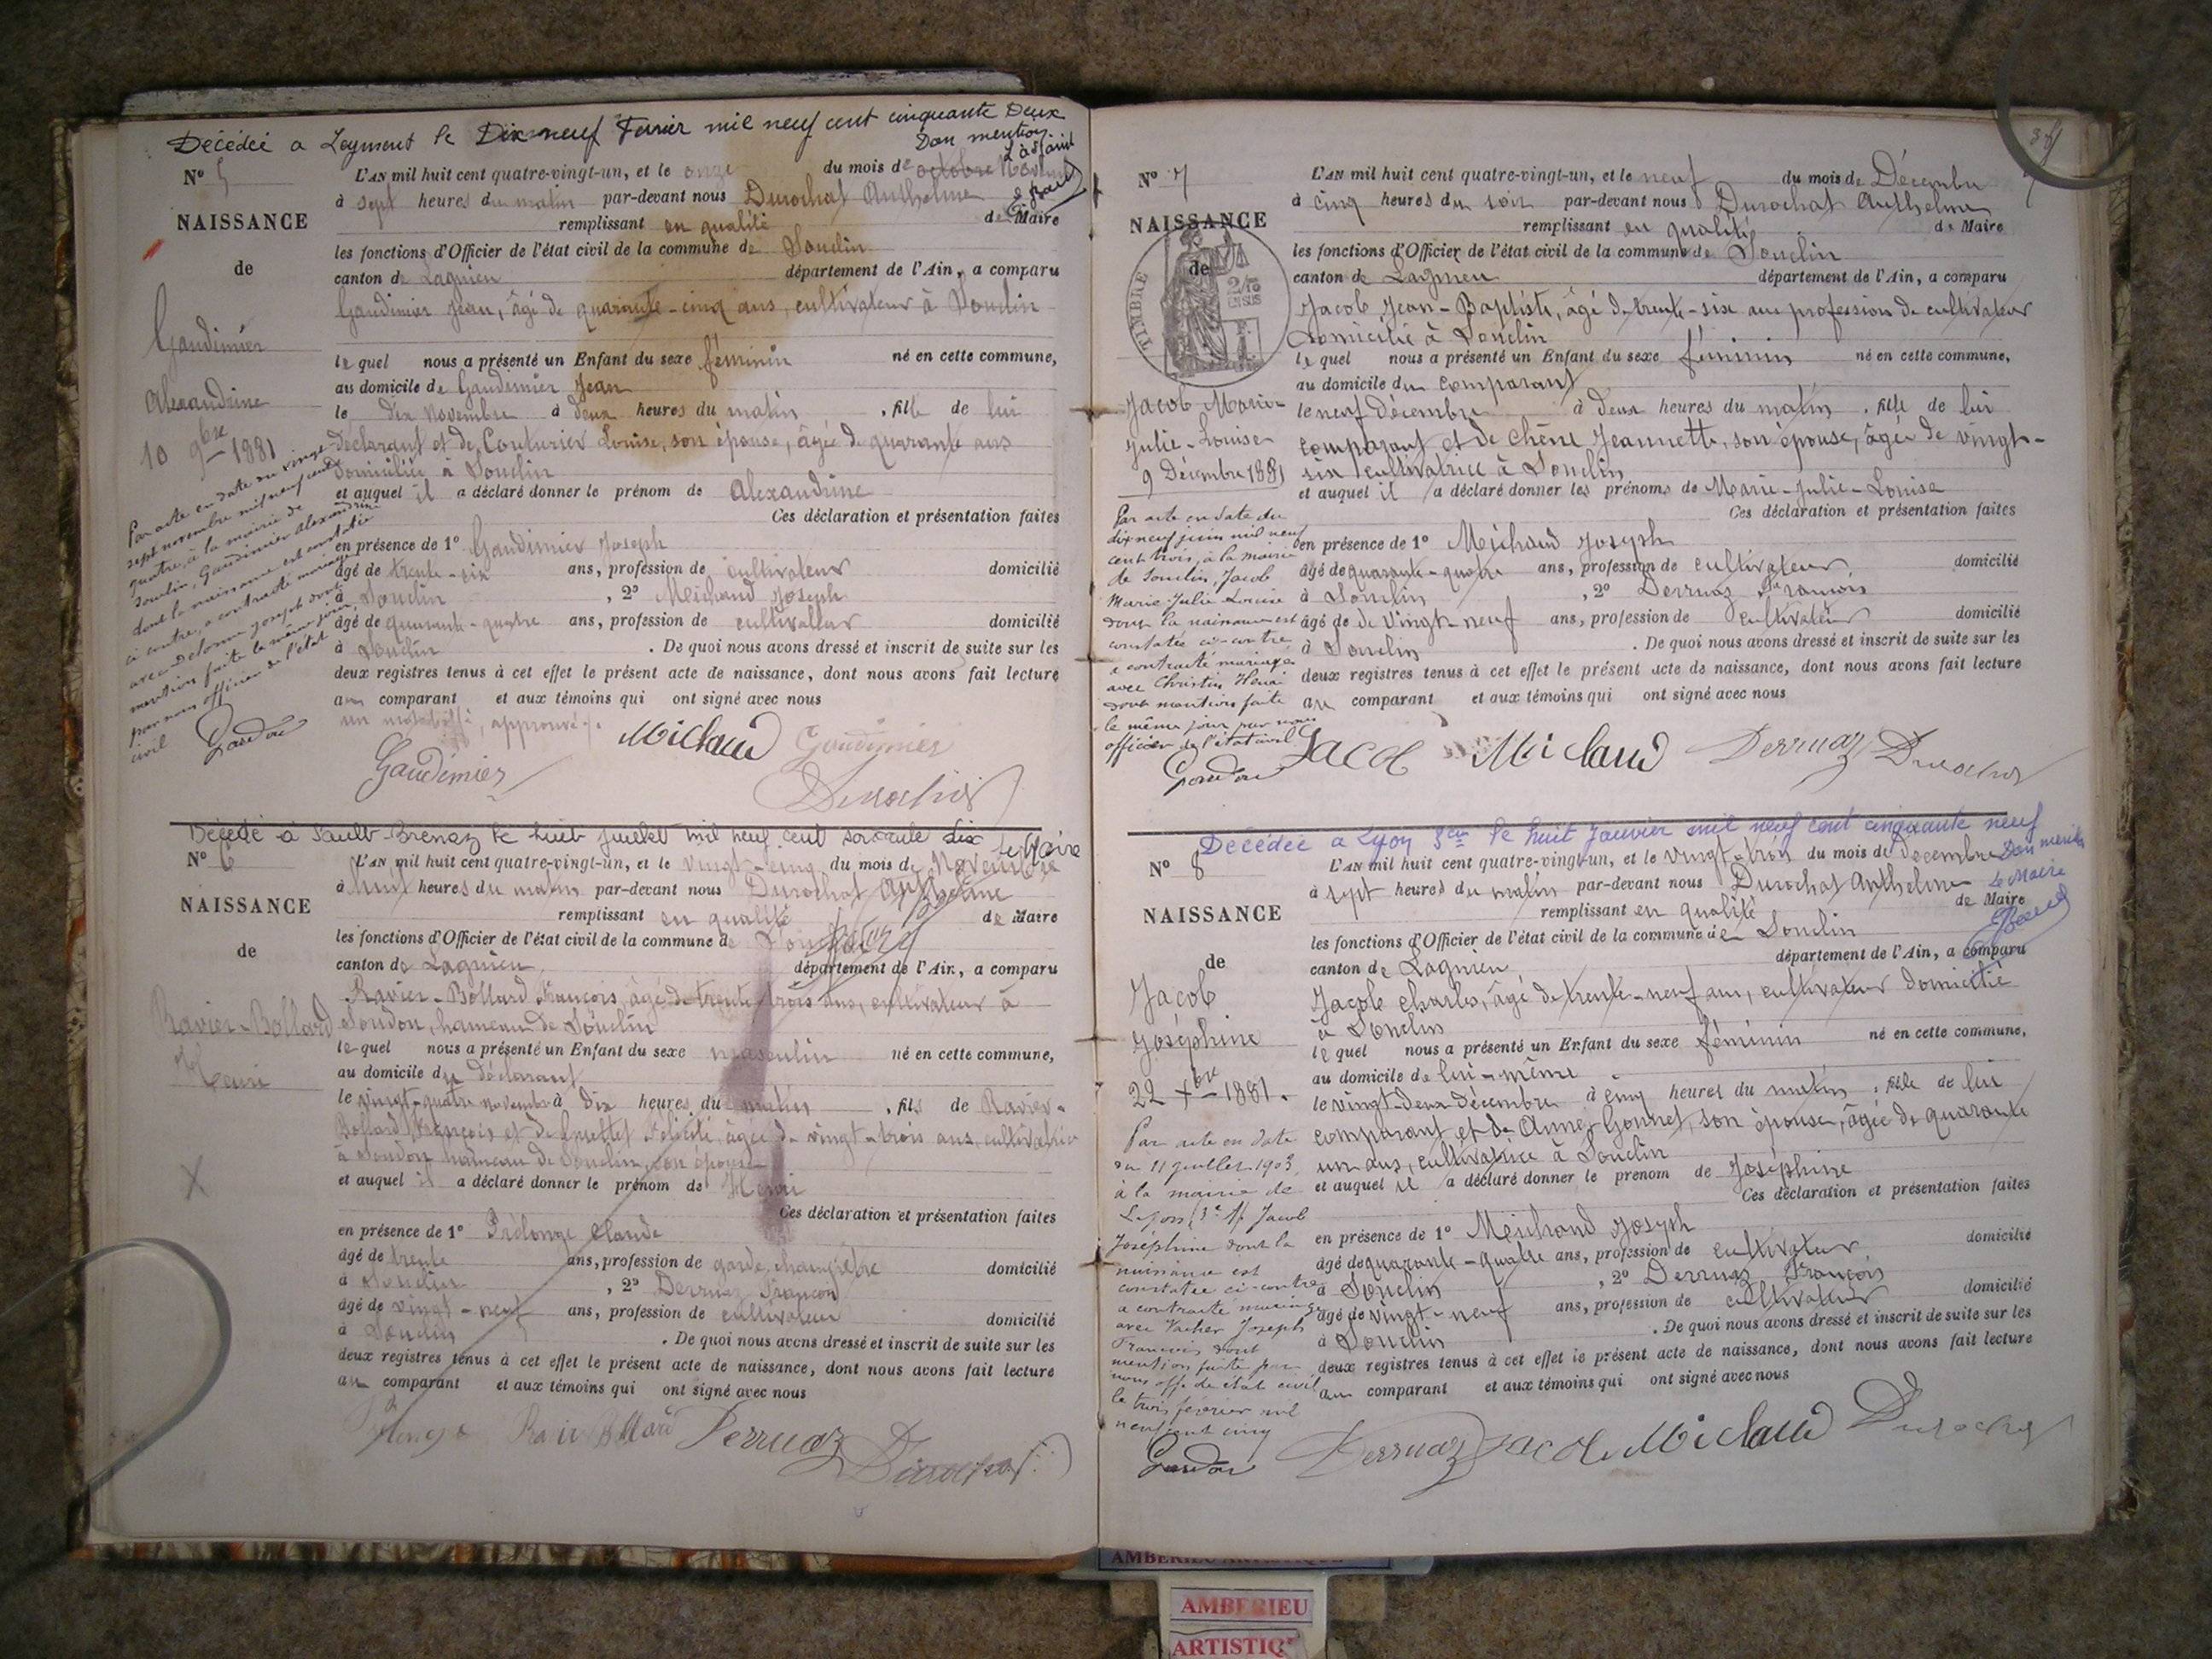 Décédée a Leyment le Dix-neuf Fevrier mil neuf cent cinquante Deux
Dont mention
L'adjoint
N° 5
NAISSANCE
de
Gaudimier
Alexandrine
10 9bre 1881
Par acte en date du vingt-
sept novembre mil neuf cent
quatre, à la mairie de
Souclin, Gaudimier Alexandrine
dont la naissance est constatée
ci contre, a contracté mariage
avec Delorme Joseph dont
mention faite le même jour
par nous officier de l'état
civil
L'AN mil huit cent quatre-vingt-un, et le onze du mois de octobre Novembre
à sept heures du matin par-devant nous Durochat Anthelme
remplissant en qualité de Maire
les fonctions d'Officier de l'état civil de la commune de Souclin
canton de Lagnieu département de l'Ain, a comparu
Gaudimier Jean, âgé de quarante-cinq ans, cultivateur à Souclin
lequel nous a présenté un Enfant du sexe féminin né en cette commune,
au domicile de Gaudimier Jean
le dix novembre à deux heures du matin, fille de lui
déclarant et de Couturier Louise, son épouse, âgée de quarante ans
domiciliée à Souclin
et auquel il a déclaré donner le prénom de Alexandrine
Ces déclaration et présentation faites
en présence de 1° Gaudimier Joseph
âgé de trente-six ans, profession de cultivateur domicilié
à Souclin, 2° Meichaud Joseph
âgé de quarante-quatre ans, profession de cultivateur domicilié
à Souclin. De quoi nous avons dressé et inscrit de suite sur les
deux registres tenus à cet effet le présent acte de naissance, dont nous avons fait lecture
au comparant et aux témoins qui ont signé avec nous
un mot biffé, approuvé.
Michaud Gaudimier
Gaudimier
Durochat
Décédé à Sault-Brenaz le huit juillet mil neuf cent soixante dix
le Maire
N° 6
NAISSANCE
de
Ravier-Bollard
Henri
L'AN mil huit cent quatre-vingt-un, et le vingt-cinq du mois de Novembre
à huit heures du matin par-devant nous Durochat Anthelme
remplissant en qualité de Maire
les fonctions d'Officier de l'état civil de la commune de Souclin
canton de Lagnieu département de l'Ain, a comparu
Ravier-Bollard François, âgé de trente-trois ans, cultivateur à
Soudon, hameau de Souclin
lequel nous a présenté un Enfant du sexe masculin né en cette commune,
au domicile du déclarant
le vingt-quatre novembre à dix heures du matin, fils de Ravier-
Bollard François et de Félicité, âgée de vingt-trois ans, cultivatrice
à Soudon hameau de Souclin, son épouse
et auquel il a déclaré donner le prénom de Henri
Ces déclaration et présentation faites
en présence de 1° Prélonge Claude
âgé de trente ans, profession de garde champêtre domicilié
à Souclin, 2° Derruaz François
âgé de vingt-neuf ans, profession de cultivateur domicilié
à Souclin. De quoi nous avons dressé et inscrit de suite sur les
deux registres tenus à cet effet le présent acte de naissance, dont nous avons fait lecture
au comparant et aux témoins qui ont signé avec nous
Ravier Bollard Derruaz
Durochat
N° 7
NAISSANCE
de
TIMBRE
2/10
EN SUS
Jacob Marie-
Julie-Louise
9 Décembre 1881
Par acte en date du
dix neuf juin mil neuf
cent trois, à la mairie
de Souclin, Jacob
Marie Julie Louise
dont la naissance est
constatée ci-contre
a contracté mariage
avec Christin Henri
dont mention faite
le même jour par nous
officier de l'état civil
L'AN mil huit cent quatre-vingt-un, et le neuf du mois de Décembre
à cinq heures du soir par-devant nous Durochat Anthelme
remplissant en qualité de Maire
les fonctions d'Officier de l'état civil de la commune de Souclin
canton de Lagnieu département de l'Ain, a comparu
Jacob Jean-Baptiste, âgé de trente-six ans profession de cultivateur
domicilié à Souclin
lequel nous a présenté un Enfant du sexe féminin né en cette commune,
au domicile du comparant
le neuf décembre à deux heures du matin, fille de lui
comparant et de Chêne Jeannette, son épouse, âgée de vingt-
six cultivatrice à Souclin
et auquel il a déclaré donner les prénoms de Marie-Julie-Louise
Ces déclaration et présentation faites
en présence de 1° Meichaud Joseph
âgé de quarante-quatre ans, profession de cultivateur domicilié
à Souclin, 2° Derruaz François
âgé de de vingt-neuf ans, profession de cultivateur domicilié
à Souclin. De quoi nous avons dressé et inscrit de suite sur les
deux registres tenus à cet effet le présent acte de naissance, dont nous avons fait lecture
au comparant et aux témoins qui ont signé avec nous
Jacob Michaud Derruaz Durochat
Décédée a Lyon 3em le huit Janvier mil neuf cent cinquante neuf
Dont mention
Le Maire
N° 8
NAISSANCE
de
Jacob
Joséphine
22 Xbre 1881.
Par acte en date
du 11 juillet 1903,
à la mairie de
Lyon (3e Ar) Jacob
Joséphine dont la
naissance est
constatée ci-contre
a contracté mariage
avec Vacher Joseph
François dont
mention faite par
nous off. de état civil
le trois février mil
neuf cent cinq
L'AN mil huit cent quatre-vingt-un, et le vingt-trois du mois de decembre
à sept heures du matin par-devant nous Durochat Anthelme
remplissant en qualité de Maire
les fonctions d'Officier de l'état civil de la commune de Souclin
canton de Lagnieu département de l'Ain, a comparu
Jacob Charles, âgé de trente-neuf ans, cultivateur domicilié
à Souclin
lequel nous a présenté un Enfant du sexe féminin né en cette commune,
au domicile de lui-même
le vingt-deux décembre à cinq heures du matin, fille de lui
comparant et de Anne Gonnet, son épouse, âgée de quarante
un ans, cultivatrice à Souclin
et auquel il a déclaré donner le prénom de Joséphine
Ces déclaration et présentation faites
en présence de 1° Meichaud Joseph
âgé de quarante-quatre ans, profession de cultivateur domicilié
à Souclin, 2° Derruaz François
âgé de vingt-neuf ans, profession de cultivateur domicilié
à Souclin. De quoi nous avons dressé et inscrit de suite sur les
deux registres tenus à cet effet le présent acte de naissance, dont nous avons fait lecture
au comparant et aux témoins qui ont signé avec nous
Derruaz Jacob Michaud Durochat
AMBERIEU ARTISTIQUE
AMBERIEU
ARTISTIQ